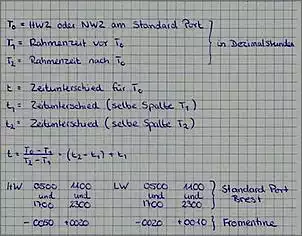 T₀ = HWZ oder NWZ am Standard Port
T₁ = Rahmenzeit vor T₀
T₂ = Rahmenzeit nach T₀
} in Dezimalstunden
t = Zeitunterschied für T₀
t₁ = Zeitunterschied (selbe Spalte T₁)
t₂ = Zeitunterschied (selbe Spalte T₂)
t = (T₀ - T₁)/(T₂ - T₁) · (t₂ - t₁) + t₁
HW 0500 1100 LW 0500 1100 } Standard Port
und und und und Brest
1700 2300 1700 2300
-0050 +0020 -0020 +0010 } Fromentine